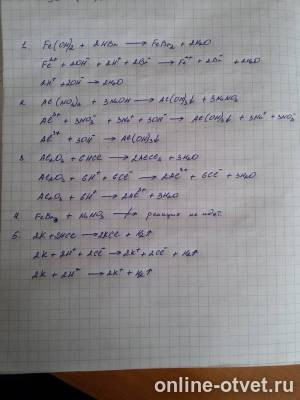 1. Fe(OH)₂ + 2HBr → FeBr₂ + 2H₂O
Fe²⁺ + 2OH⁻ + 2H⁺ + 2Br⁻ → Fe²⁺ + 2Br⁻ + 2H₂O
2H⁺ + 2OH⁻ → 2H₂O
2. Al(NO₃)₃ + 3NaOH → Al(OH)₃↓ + 3NaNO₃
Al³⁺ + 3NO₃⁻ + 3Na⁺ + 3OH⁻ → Al(OH)₃↓ + 3Na⁺ + 3NO₃⁻
Al³⁺ + 3OH⁻ → Al(OH)₃↓
3. Al₂O₃ + 6HCl → 2AlCl₃ + 3H₂O
Al₂O₃ + 6H⁺ + 6Cl⁻ → 2Al³⁺ + 6Cl⁻ + 3H₂O
Al₂O₃ + 6H⁺ → 2Al³⁺ + 3H₂O
4. реакция не идет.
5. 2K + 2HCl → 2KCl + H₂↑
2K + 2H⁺ + 2Cl⁻ → 2K⁺ + 2Cl⁻ + H₂↑
2K + 2H⁺ → 2K⁺ + H₂↑
online-otvet.ru